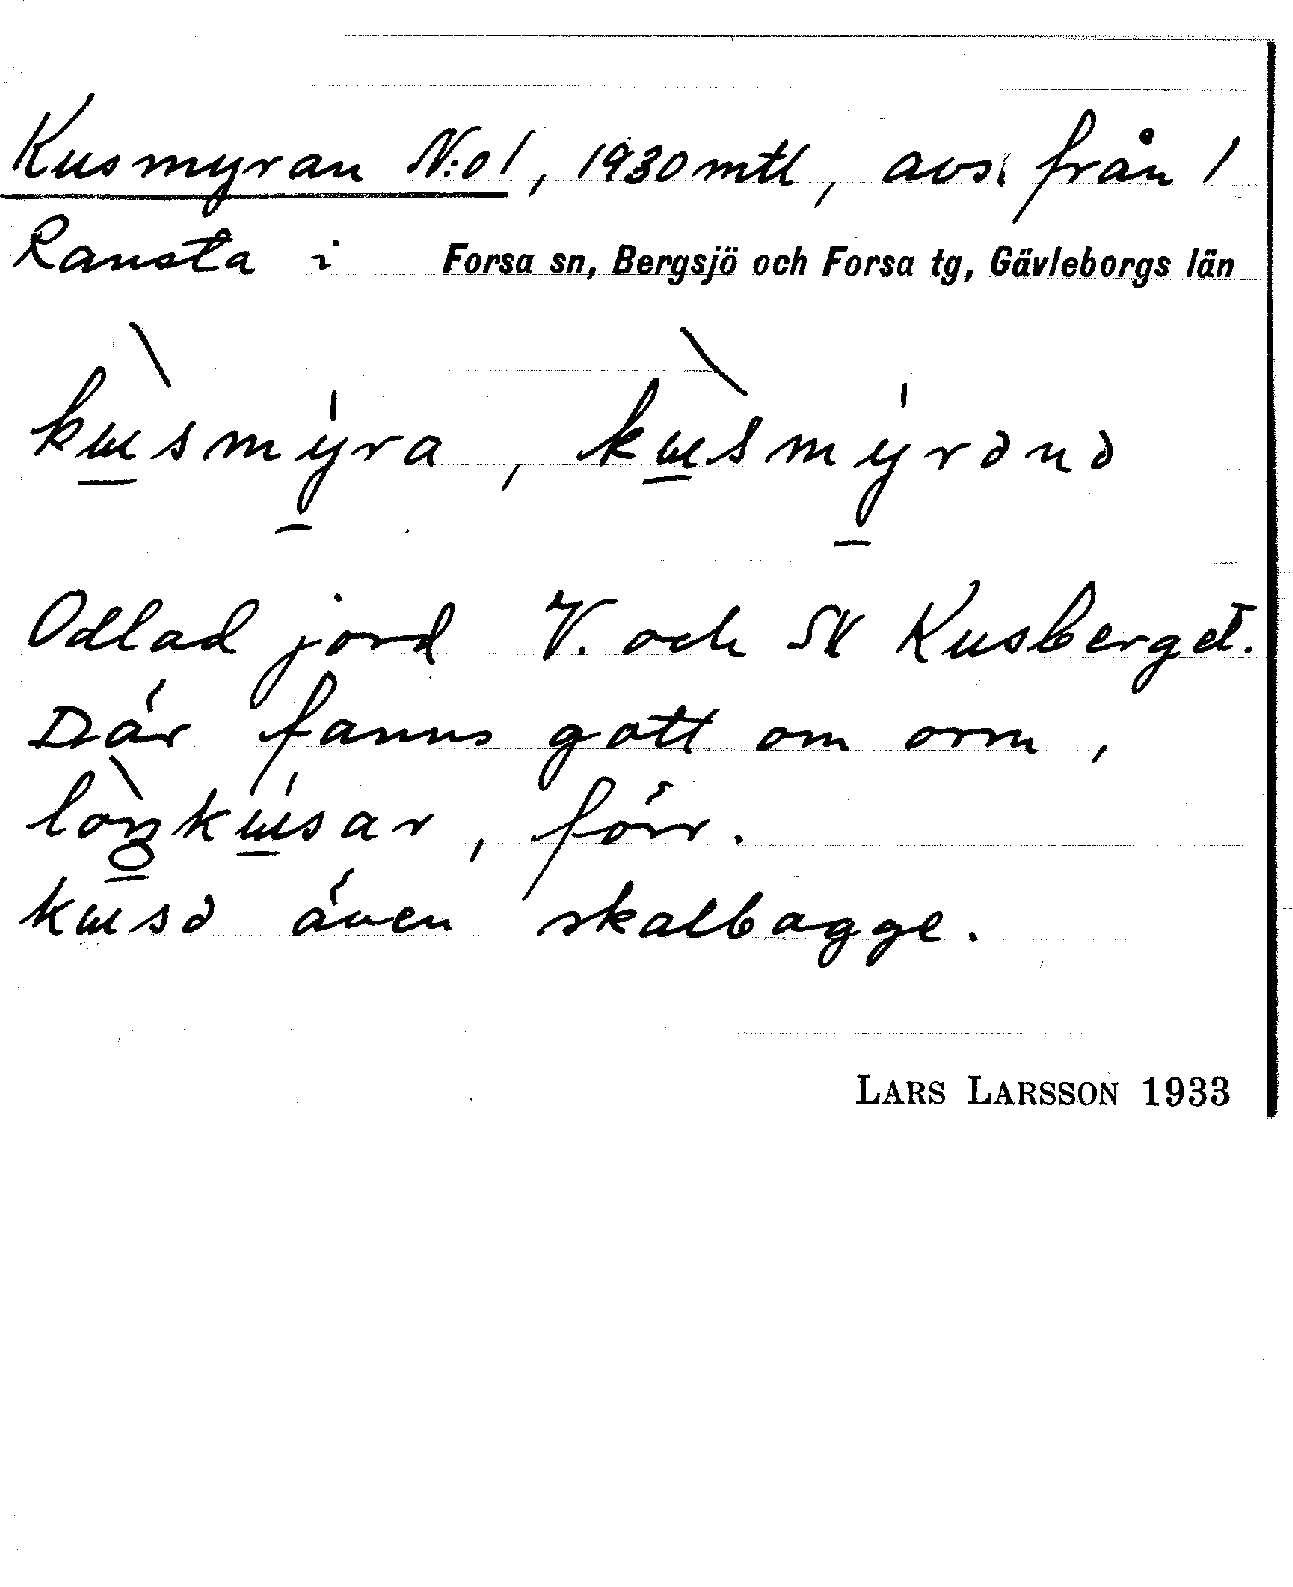 Kusmyran N:o 1, 1930 mtl, avs. från 1
Ransta i Forsa sn, Bergsjö och Forsa tg, Gävleborgs län
kɯ̱̀smy̱̍ra, kɯ̱̀smy̱̍rənə
Odlad jord V. och SV Kusberget.
Där fanns gott om orm,
lòŋkɯ̱̍sar, förr.
kɯsə även skalbagge.
LARS LARSSON 1933